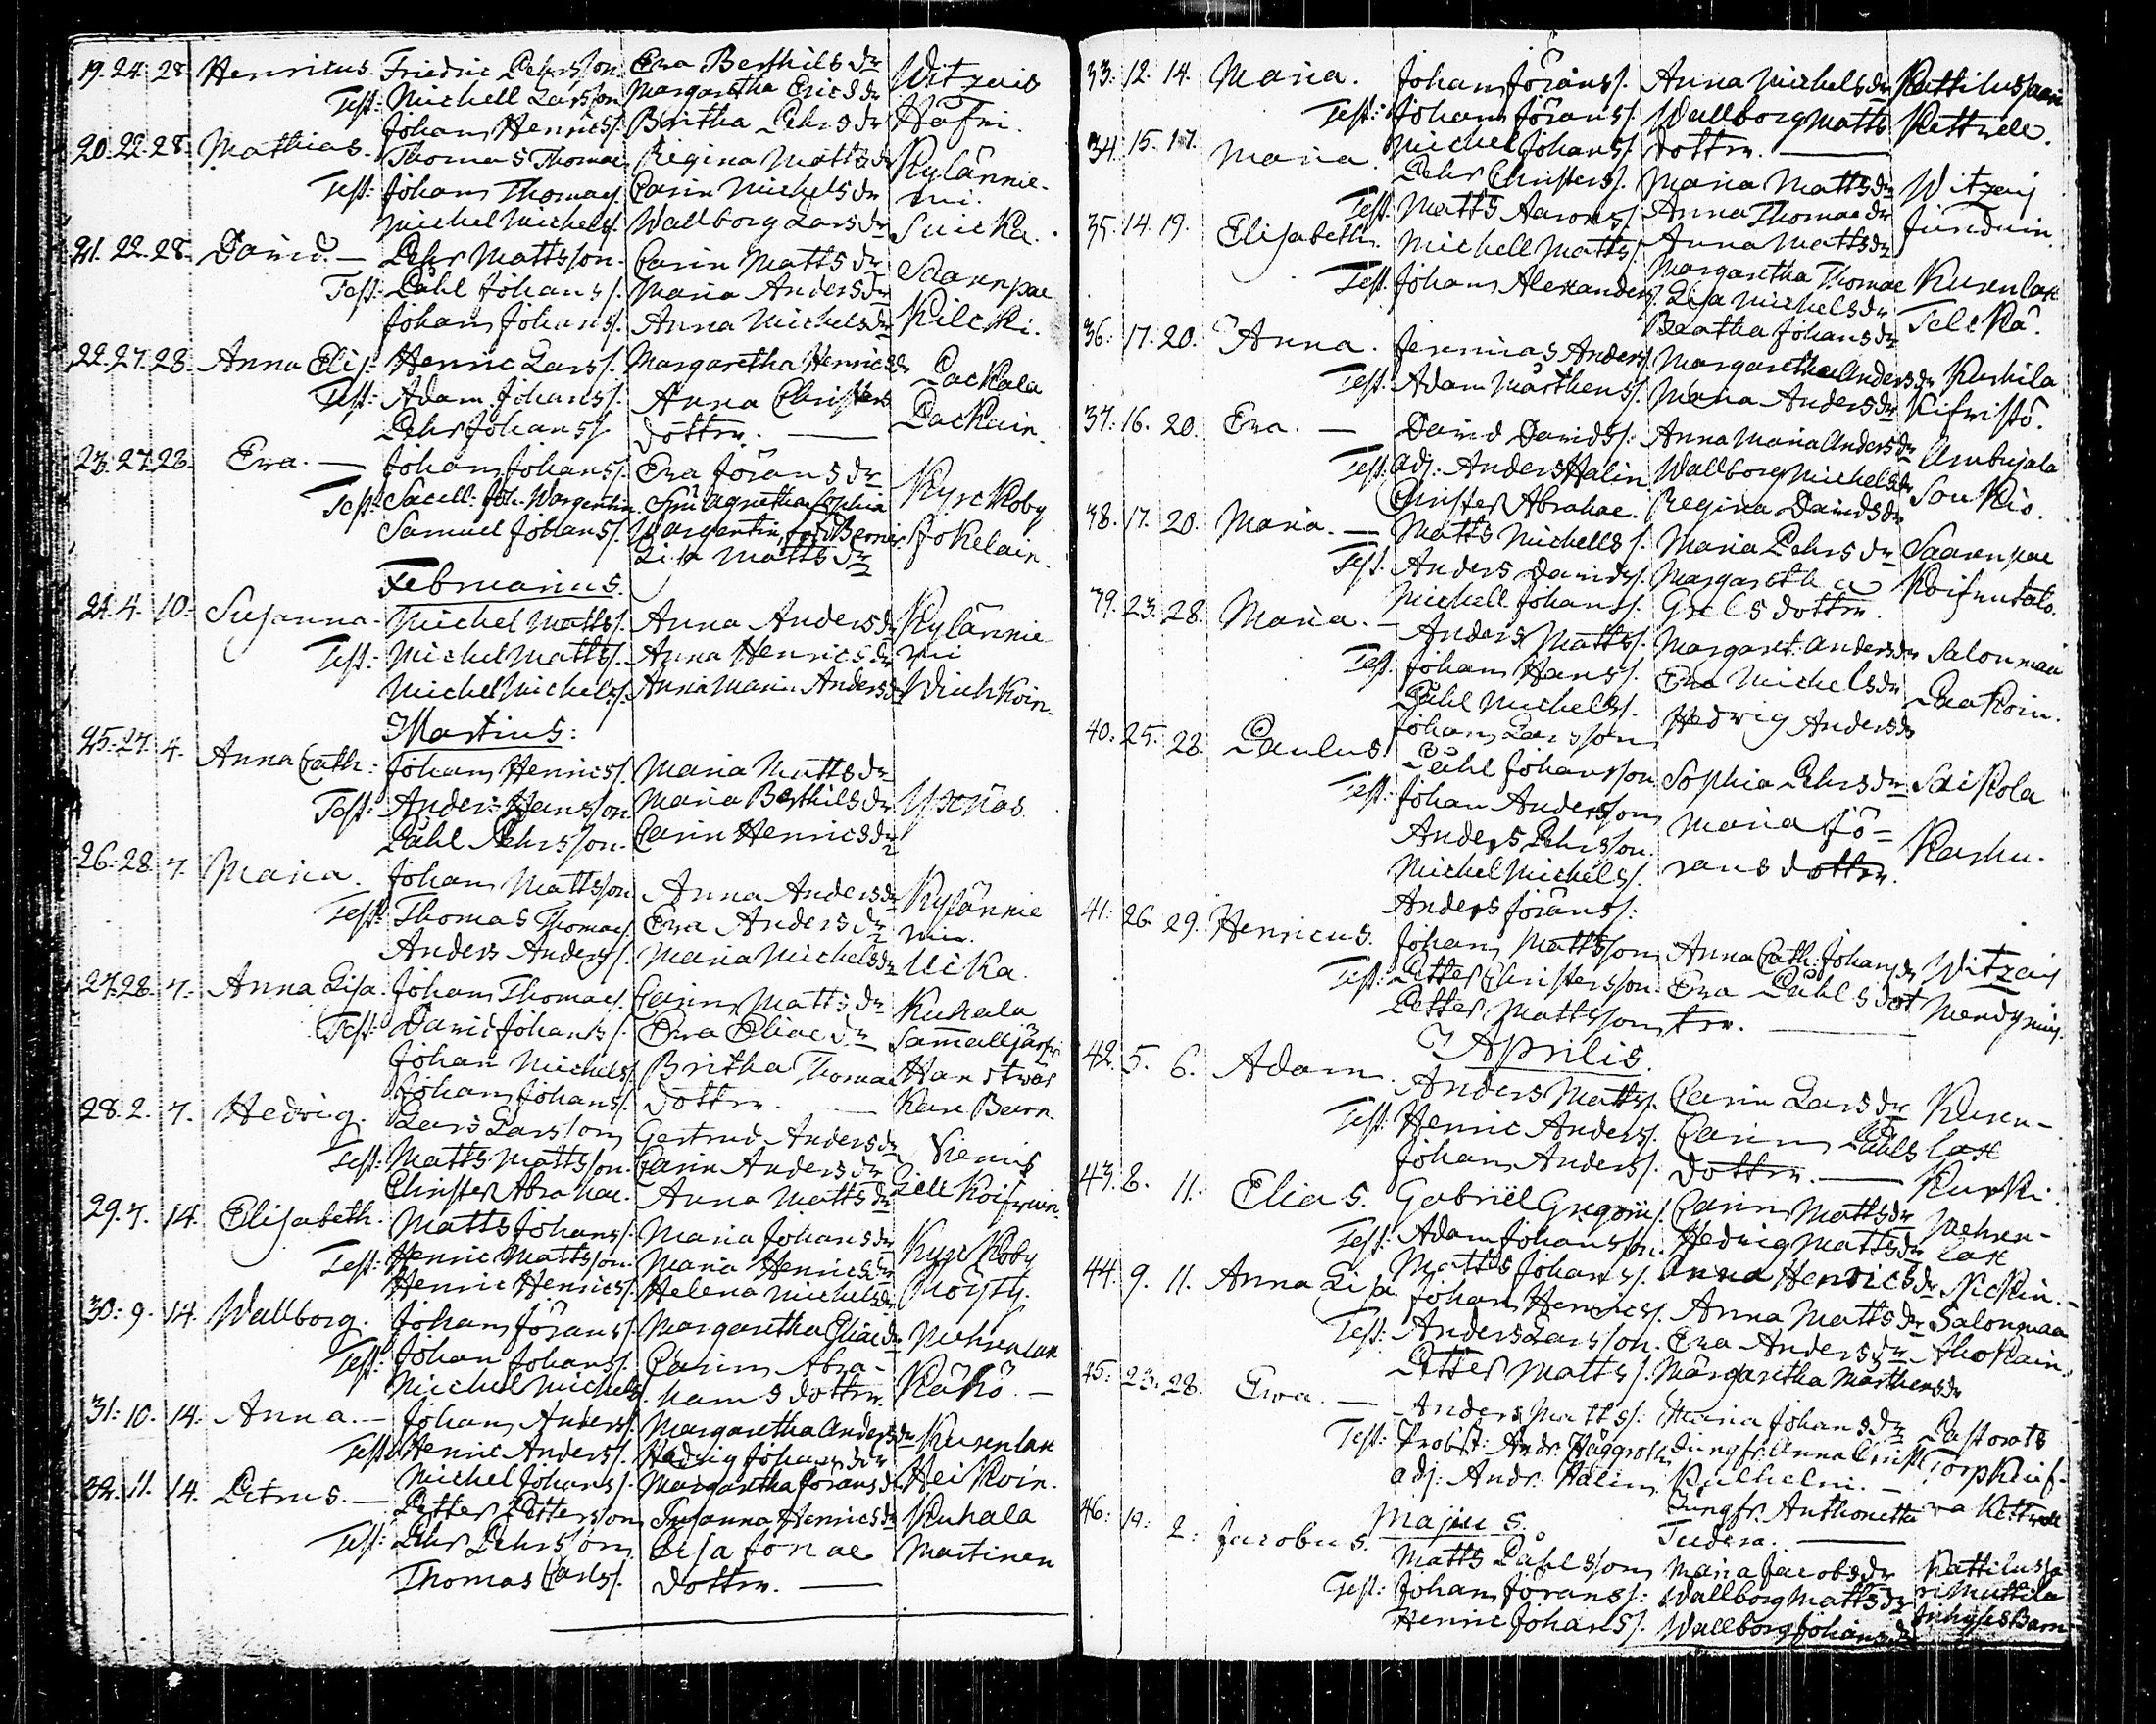 19. 24. 28. Henricus. Friedric Pehrsson. Eva Berthils dr Witzais
Test: Michell Larsson Margaretha Erics dr Håfri.
Johan Henrics/. Britha Pehrs dr
20. 22. 28. Mathias. Thomas Thomae Regina Matts dr Kylännie-
Test: Johan Thomas/. Carin Michels dr mi.
Michel Michels/. Wallborg Lars dr Suicka.
21. 22. 28. David. — Pehr Mattsson. Carin Matts dr Saarnpae
Test: Påhl Johans/. Maria Anders dr Kilcki.
Johan Johans/. Anna Michels dr
22. 27. 28. Anna Elis: Henric Larss/. Margaretha Henrics dr Lackala
Test: Adam Johans/. Anna Christers Lackain.
Pehr Johans/ dotter. —
23. 27. 28. Eva. — Johan Johans/. Eva Jörans dr Kyrckoby
Test: Sacell: Joh. Wargentin. Fru Agnetha Sophia
Samuel Johans/. Wargentin, född Berner. Jokelain.
Lisa Matts dr
Februarius.
24. 4. 10. Susanna. Michel Matts/. Anna Anders dr Kylännie
Test: Michel Matts/. Anna Henrics dr mi
Michel Michels/. Anna Maria Anders dr Wiuhkoin.
Martius:
25. 27. 4. Anna Cath: Johan Henrics/. Maria Matts dr
Test: Anders Hansson Maria Berthils dr Yxnäs.
Påhl Pehrsson. Carin Henrics dr
26. 28. 7. Maria. Johan Mattsson Anna Anders dr Kylännie
Test: Thomas Thomas/. Eva Anders dr mi.
Anders Anders/. Maria Michels dr Ucka.
27. 28. 7. Anna Lisa. Johan Thomas/. Carin Matts dr Kuhala
Test: David Johans/. Eva Eliae dr Sam̄alljärfvi
Johan Michels/. Britha Thomae
Johan Johans/. dotter. —
28. 2. 7. Hedvig. Lars Larsson Gertrud Anders dr Niemis
Test: Matts Mattsson. Carin Anders dr
Christer Abrahae. Anna Matts dr
29. 7. 14. Elisabeth. Matts Johans/. Maria Johans dr Kyrckoby
Test: Henric Mattsson. Maria Henrics dr
Henric Henrics/. Helena Michels dr Moysty.
30. 9. 14. Wallborg. Johan Jörans/. Margaretha Eliae dr Mehrenlax
Test: Johan Johans/. Carin Abra-
Michel Michels/. hams dotter. Käkö. —
31. 10. 14. Anna. — Johan Anders/. Margaretha Anders dr Kurenlax
Test: Henric Anders/. Hedvig Johans dr
Michel Johans/. Margaretha Jörans dr Heikoin.
32. 11. 14. Petrus. — Petter Pettersson Susanna Henrics dr Kuhala
Test: Pehr Pehrsson Lisa Jonae Martinen
Thomas Carls/. dotter. —
33. 12. 14. Maria. Johan Jörans/. Anna Michels dr Kattilussaari
Test: Johan Jörans/. Wallborg Matts Kettrele.
Michel Johans/. dotter. —
34. 15. 17. Maria. Pehr Christers/. Maria Matts dr Witzais
Test. Matts Aarons/. Anna Thomae dr Junduin.
35. 14. 19. Elisabeth. Michell Matts/. Anna Matts dr
Margaretha Thomae Kurenlax
Test. Johan Alexanders/. Lisa Michels dr Telckä.
Beatha Johans dr
36. 17. 20. Anna. Jeremias Anders/. Margaretha Anders dr Kurkila
Test: Adam Mårthens/. Maria Anders dr
37. 16. 20. Eva. — David Davids/. Anna Maria Anders dr
Test: Adj: Anders Halin Wallborg Michels dr
Christer Abrahae. Regina Davids dr Souckio.
38. 17. 20. Maria. — Matts Michells/. Maria Pehrs dr Saarenpae
Test. Anders Davids/. Margaretha Koifvutalo.
Michell Johans/. Grels dotter.
39. 23. 28. Maria. — Anders Matts/. Margaret: Anders dr Salonmaa
Test Johan Hans/. Eva Michels dr Laakoin.
Påhl Michels/. Hedvig Anders dr
Johan Larsson
40. 25. 28. Paulus. Påhl Johansson Sophia Pehrs dr Säickola
Test: Johan Andersson Maria Jö=
Anders Pehrsson. rans dotter. Karhu.
Michel Michels/.
Anders Jörans/:
41. 26. 29. Henricus. Johan Mattsson Anna Cath: Johans dr Witzais
Test: Petter Christersson. Eva Påhls dot
Petter Mattsson ter. —
Aprilis.
42. 5. 6. Adam. Anders Matts/. Carin Lars dr Kuren-
Test: Henric Anders/. Carin Påhls lax
Johan Anders/. dotter. — Kurki.
43. 8. 11. Elias. Gabriel Gregorii/. Carin Matts dr Mehren-
Test: Adam Johansson. Hedvig Matts dr lax
Matts Johans/. Anna Henrics dr Nickin. —
44. 9. 11. Anna Lisa. Johan Henrics/. Anna Matts dr Salonmaa
Test: Anders Larsson. Eva Anders dr Ahokain.
Petter Matts/. Margaretha Mårthens dr
45. 23. 28. Eva. — Anders Matts/. Maria Johans dr Pastorats
Test: Probst: Andr. Häggroth Jungfr: Anna Christ:
Adj: Andr: Halin
Jungfr. Anthonetta
Tudera. —
Majus.
46. 19. 2. Jacobus. Matts Påhlsson Maria Jacobs dr Kattilussa
Test: Johan Jörans/: Wallborg Matts dr ri Muttila
Henric Johans/. Wallborg Johans dr Inhyses Barn